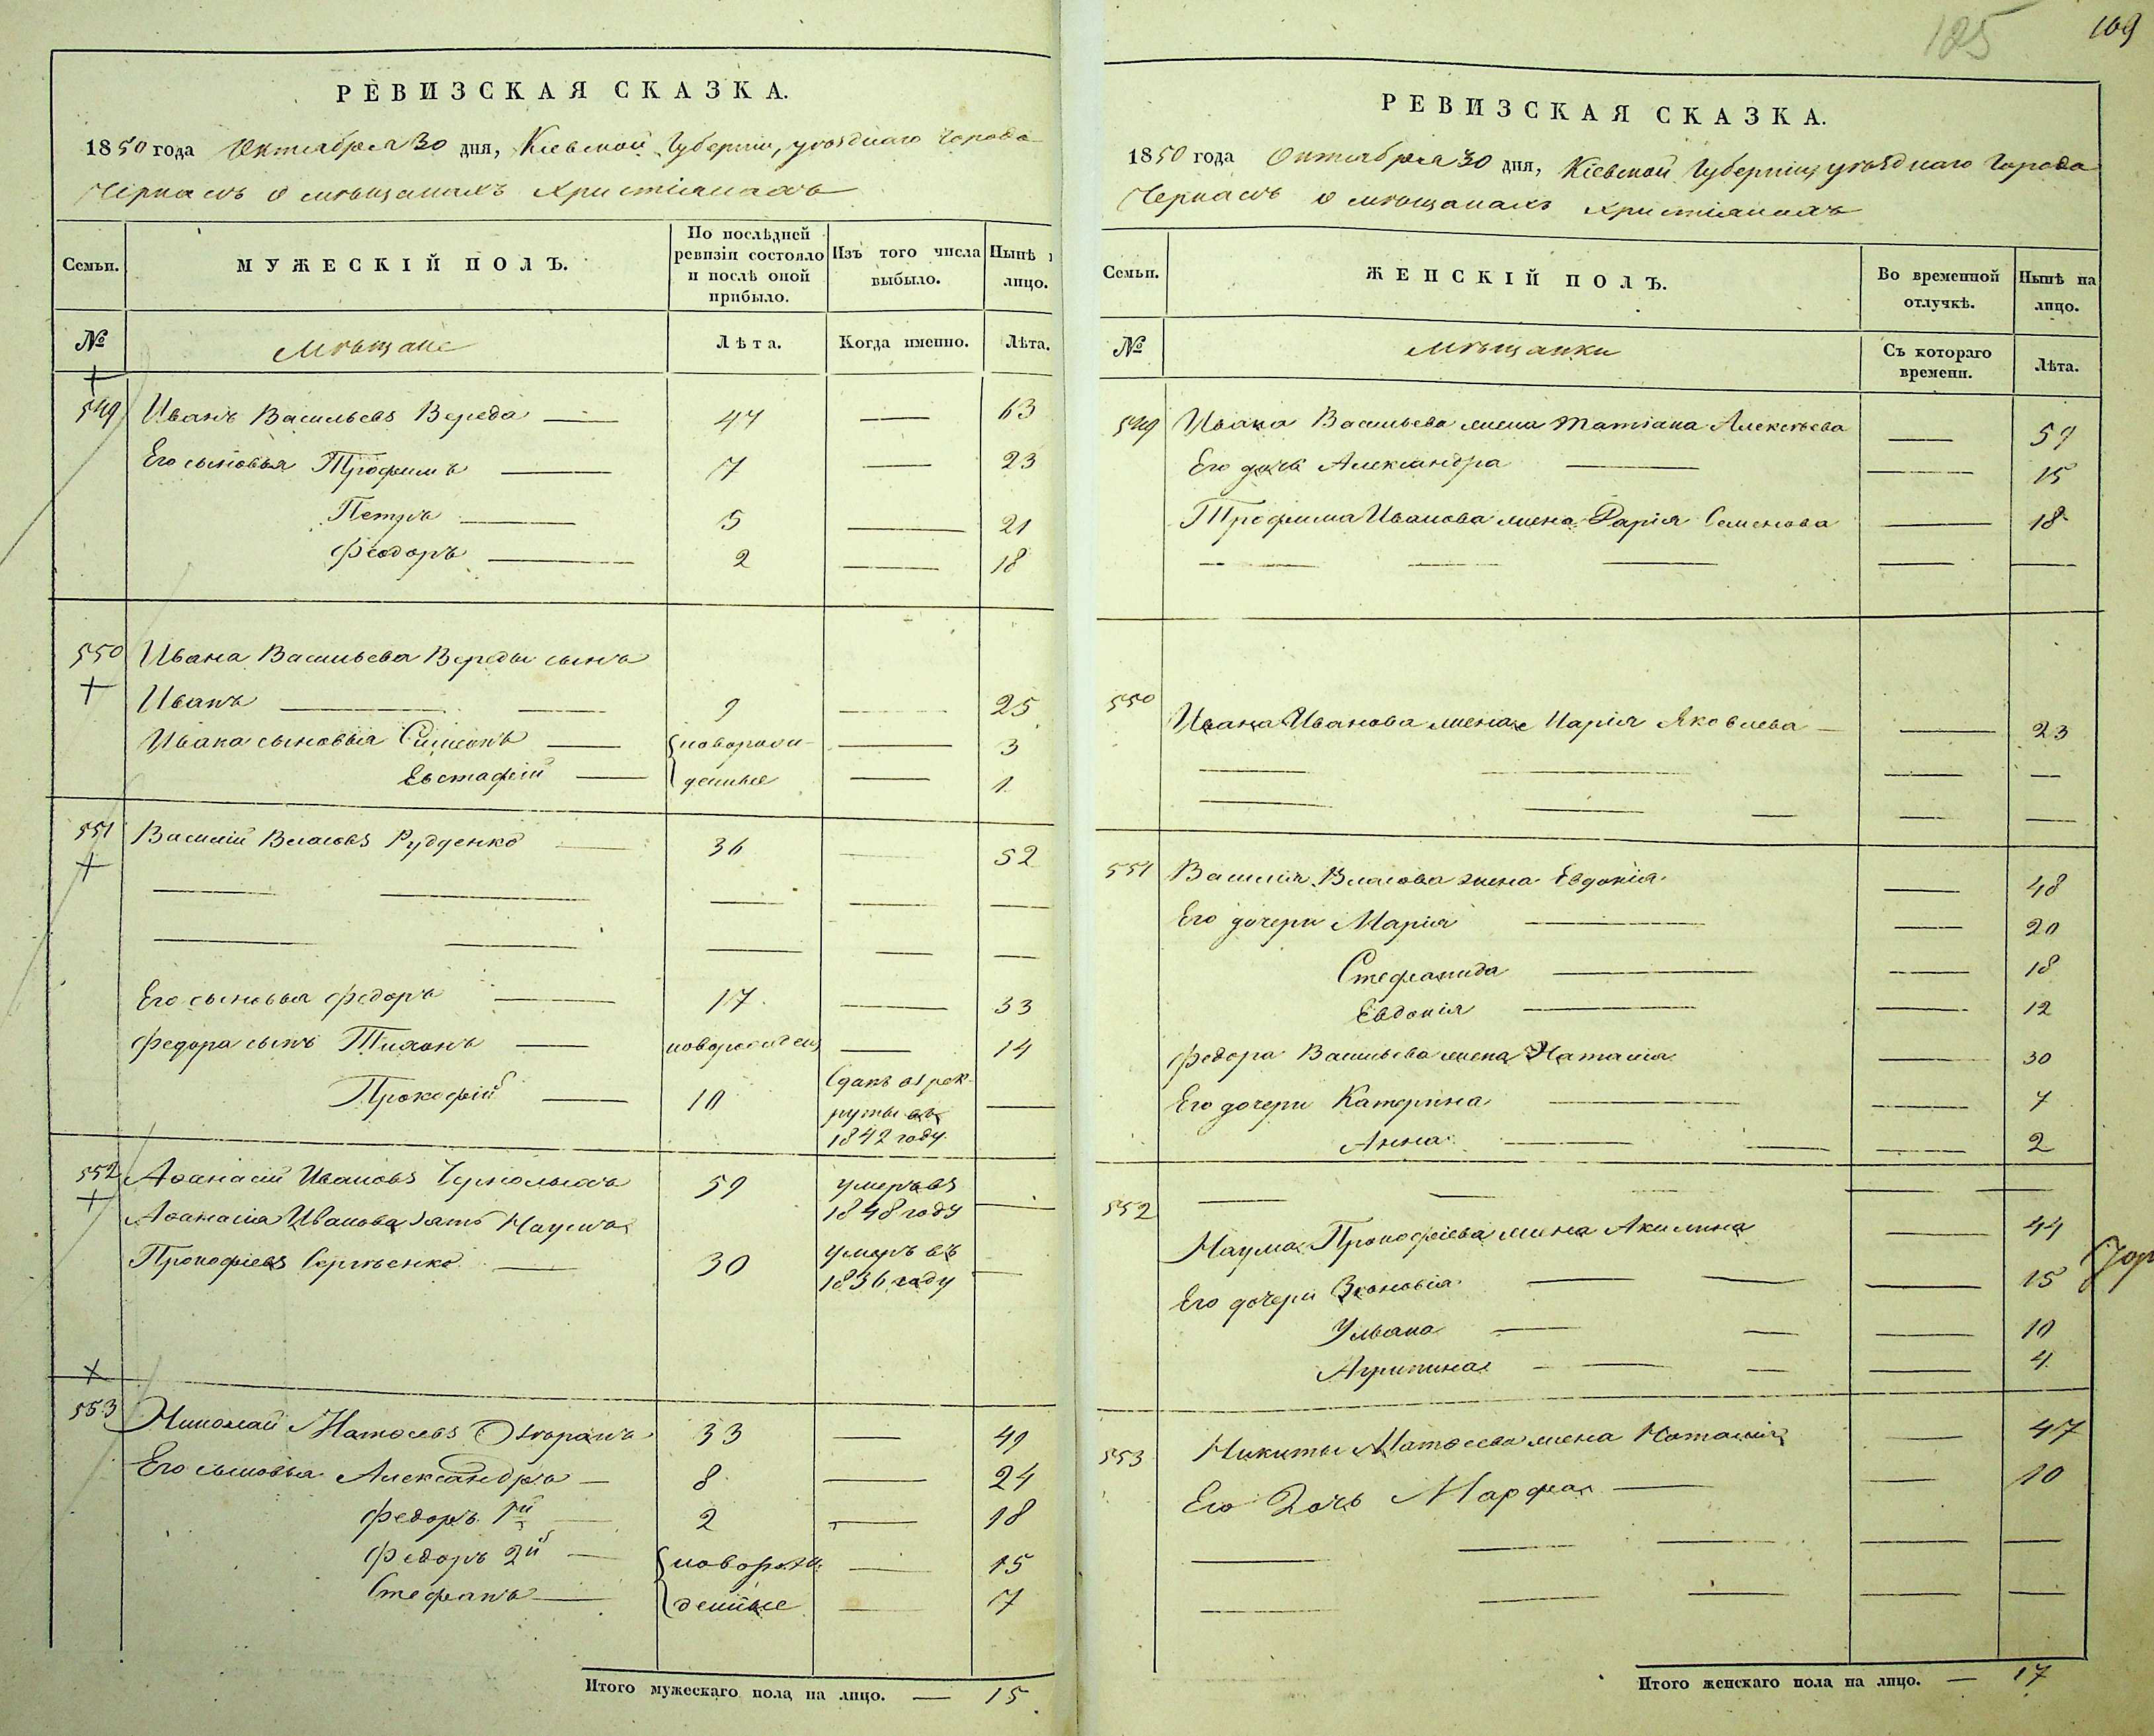 РЕВИЗСКАЯ СКАЗКА.
1850 года Октября 30 дня, Кіевской Губерніи, уѣзднаго города
Черкасъ о мѣщанахъ христіанахъ
Семьи.
МУЖЕСКІЙ ПОЛЪ.
По послѣдней ревизіи состояло и послѣ оной прибыло.
Изъ того числа выбыло.
Нынѣ
лицо.
№
Мѣщане
Лѣта.
Когда именно.
Лѣта.
549 Иванъ Васильевъ Вереда — 47 — 63
Его сыновья Трофимъ — 7 — 23
Петръ — 5 — 21
Феодоръ — 2 — 18
550 Ивана Васильева Вереды сынъ
Иванъ — 9 — 25
Ивана сыновья Симеонъ — новорож — 3
Евстафій — денные — 1
551 Василій Власовъ Рудденко — 36 — 52
Его сыновья Федоръ — 17 — 33
Федора сынъ Тихонъ — новорожден — 14
Прокофій — 10 Сданъ въ рек-
руты въ
1842 году —
552 Аѳанасій Ивановъ 59 умеръ въ
1848 году —
Аѳанасія Иванова зять Наумъ
Прокофіевъ Сергѣенко — 30 умеръ въ
1836 году —
553 Николай Матвеевъ 33 — 49
Его сыновья Александръ — 8 — 24
Федоръ 1й — 2 — 18
Федоръ 2й — новорож — 15
Стефанъ — денные — 7
Итого мужескаго пола на лицо. — 15
125 109
РЕВИЗСКАЯ СКАЗКА.
1850 года Октября 30 дня, Кіевской Губерніи уѣзднаго города
Черкасъ о мѣщанахъ христіанахъ
Семьи.
ЖЕНСКІЙ ПОЛЪ.
Во временной отлучкѣ.
Нынѣ на лицо.
№
Мѣщанки
Съ котораго времени.
Лѣта.
549 Ивана Васильева жена Татіана Алексѣева — 59
Его дочь Александра — 15
Трофима Иванова жена Дарія Семенова — 18
550 Ивана Иванова жена Марія Яковлева — 23
551 Василія Власова жена Евдокія — 48
Его дочери Марія — 20
Стефанида — 18
Евдокія — 12
Федора Васильева жена Наталія — 30
Его дочери Катерина — 7
Анна — 2
552
Наума Прокофіева жена Акилина — 44
Его дочери Зѣновія — 15
Ульяна — 10
Агрипина — 4
553 Никиты Матвеева жена Наталія — 47
Его Дочь Марфа — 10
Итого женскаго пола на лицо. — 17